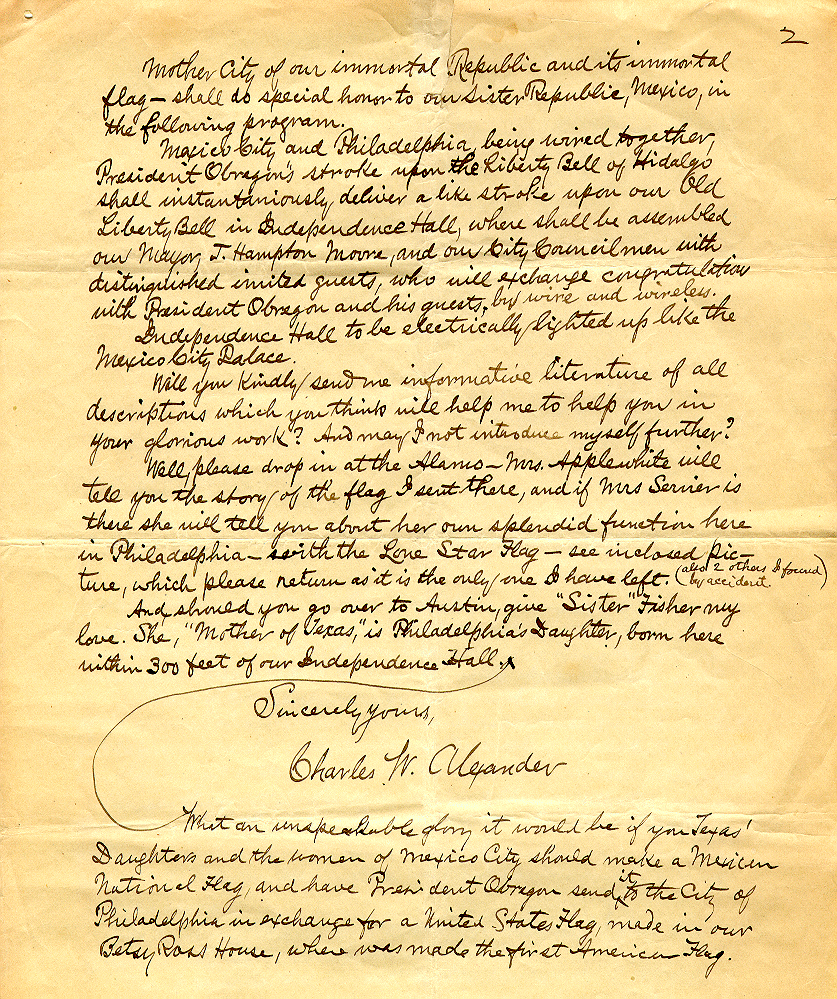 2
Mother City of our immortal Republic and its immortal
flag — shall do special honor to our Sister Republic, Mexico, in
the following program.
Mexico City and Philadelphia, being wired together,
President Obregon's stroke upon the Liberty Bell of Hidalgo
shall instantaniously deliver a like stroke upon our Old
Liberty Bell in Independence Hall, where shall be assembled
our Mayor, J. Hampton Moore, and our City Councilmen with
distinguished invited guests, who will exchange congratulation
with President Obregon and his guests, by wire and wireless.
Independence Hall to be electrically lighted up like the
Mexico City Palace.
Will you kindly send me informative literature of all
descriptions which you think will help me to help you in
your glorious work? And may I not introduce myself further?
Well, please drop in at the Alamo — Mrs. Applewhite will
tell you the story of the flag I sent there, and if Mrs Servier is
there she will tell you about her own splendid function here
in Philadelphia — with the Lone Star Flag — see inclosed pic-
ture, which please return as it is the only one I have left. (also 2 others I found
by accident)
And should you go over to Austin, give "Sister" Fisher my
love. She, "Mother of Texas," is Philadelphia's Daughter, born here
within 300 feet of our Independence Hall. x
Sincerely yours,
Charles W. Alexander
What an unspeakable glory it would be if you Texas'
Daughters and the women of Mexico City should make a Mexican
National Flag, and have President Obregon send it to the City of
Philadelphia in exchange for a United States Flag, made in our
Betsy Ross House, where was made the first American Flag.